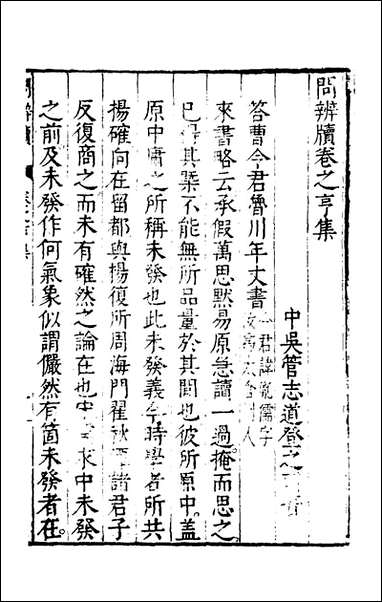 問辨牘卷之亨集
中吳管志道登之
答曹令君魯川年丈書
君諱胤儒字
來書略云承假萬思默易原急讀一過掩而思之
已得其槩不能無所品量於其間也彼所原中蓋
原中庸之所稱未發也此未發義今時學者所共
揚確向在留都與楊復所周海門翟秋潭諸君子
反復商之而未有確然之論在也
求中未發
之前及未發作何氣象似謂儼然有箇未發者在